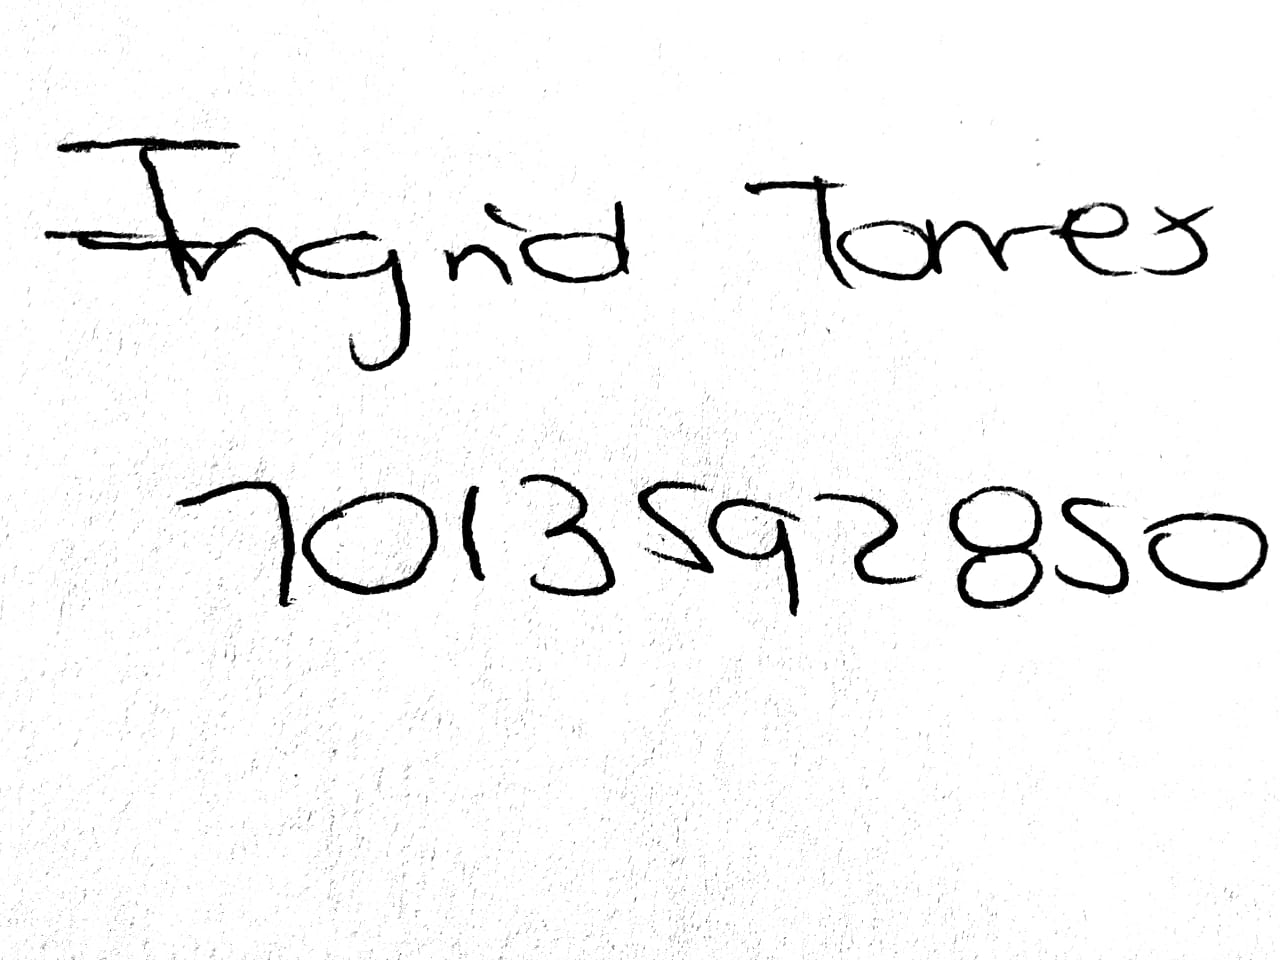 Ingrid Torres
7013592850